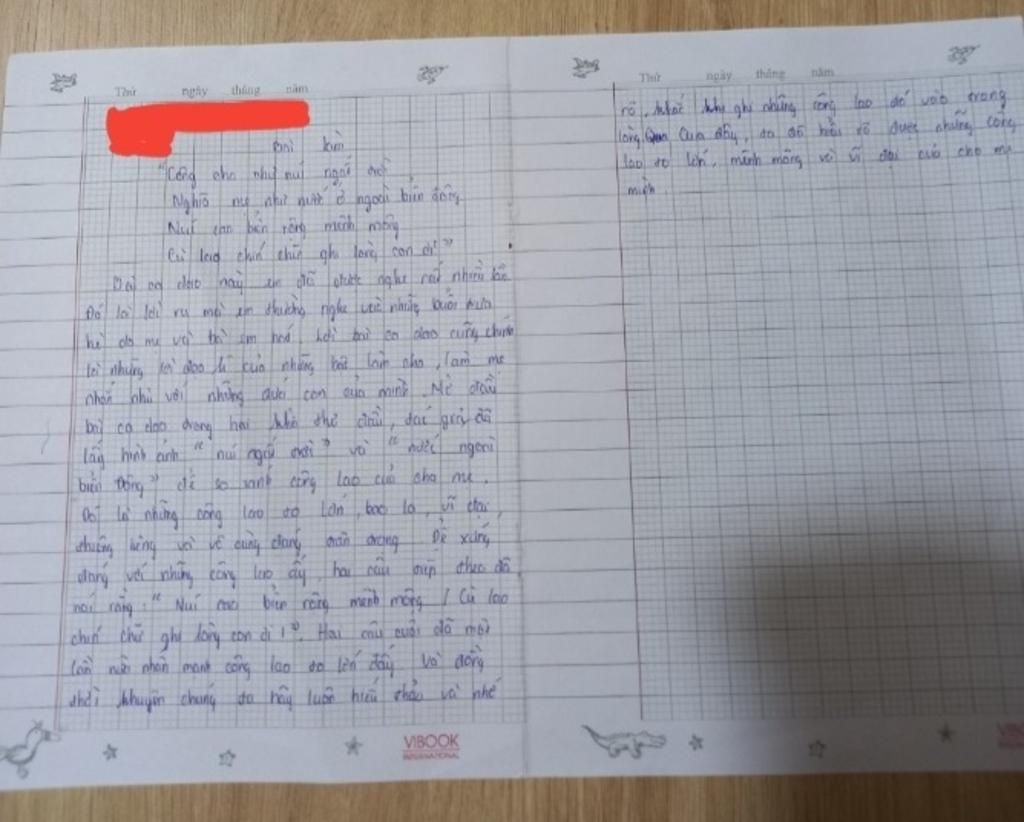 Thứ ngày tháng năm
Bài làm
"Công cha như núi ngất trời
Nghĩa mẹ như nước ở ngoài biển đông
Núi cao biển rộng mênh mông
Cù lao chín chữ ghi lòng con ơi!"
Bài ca dao này em đã được nghe rất nhiều lần
Đó là lời ru mà em thường nghe vào những buổi trưa
hè do mẹ và bà em hát. Lời bài ca dao cũng chính
là những lời đạo lí của những bậc làm cha, làm mẹ
nhắn nhủ với những đứa con của mình. Mở đầu
bài ca dao trong hai khổ thơ đầu, tác giả đã
lấy hình ảnh "núi ngất trời" và "nước ngoài
biển Đông" để so sánh công lao của cha mẹ.
Đó là những công lao to lớn, bao la, vĩ đại,
thiêng liêng và vô cùng đáng trân trọng. Để xứng
đáng với những công lao ấy, hai câu tiếp theo đã
nói rằng: "Núi cao biển rộng mênh mông / Cù lao
chín chữ ghi lòng con ơi!". Hai câu cuối đã một
lần nữa nhấn mạnh công lao to lớn đấy và đồng
thời khuyên chúng ta hãy luôn hiếu thảo và nhớ
VIBOOK
INTERNATIONAL
Thứ ngày tháng năm
rõ, khắc ghi những công lao đó vào trong
lòng. Qua đây, ta đã hiểu rõ được những công
lao to lớn, mênh mông và vĩ đại của cha mẹ
mình.